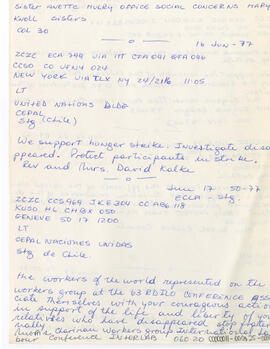 Sister Anette Mulry Office Social Concerns Mary
Knoll Sisters
COL 30
16 Jun-77
ZCZC ECA 799 VIA ITT CFA 091 GFA 096
CCSO CO UFNY 024
NEW YORK VIA TLX NY 24/216 11:05
LT
UNITED NATIONS BLDG
CEPAL
Stg (Chile)
We support hunger strike. Investigate disa
ppeared. Protect participants in strike.
Rev and Mrs. David Kalke
Jun 17 - 50-77
ECLA - Stg.
ZCZC CCS969 JKE304 CCA86 118
KUSO HL CHBX 050
GENEVE 50 17 1200
LT
CEPAL NACIONES UNIDAS
Stg de Chile.
the workers of the world represented on the
workers group at the 63 RD ILC CONFERENCE ASS
ciate themselves with your courageous action
in support of the life and liberty of you
relatives who have disappeared stop frater
nally workers group International la
bour Conference INTERLAB
060 20